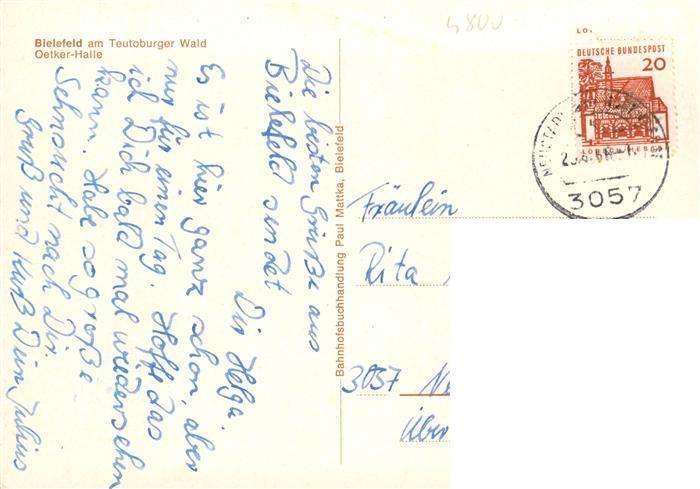 4800
Bielefeld am Teutoburger Wald
Oetker-Halle
Die besten Grüße aus
Bielefeld sendet
Dir Helga.
Es ist hier ganz schön, aber
nur für einen Tag. Hoffe das
ich Dich bald mal wiedersehen
kann. Habe so große
Sehnsucht nach Dir.
Gruß und Kuß Dein Julius
Bahnhofsbuchhandlung Paul Mattka, Bielefeld
DEUTSCHE BUNDESPOST
20
3057
Fräulein
Rita
3057
Über